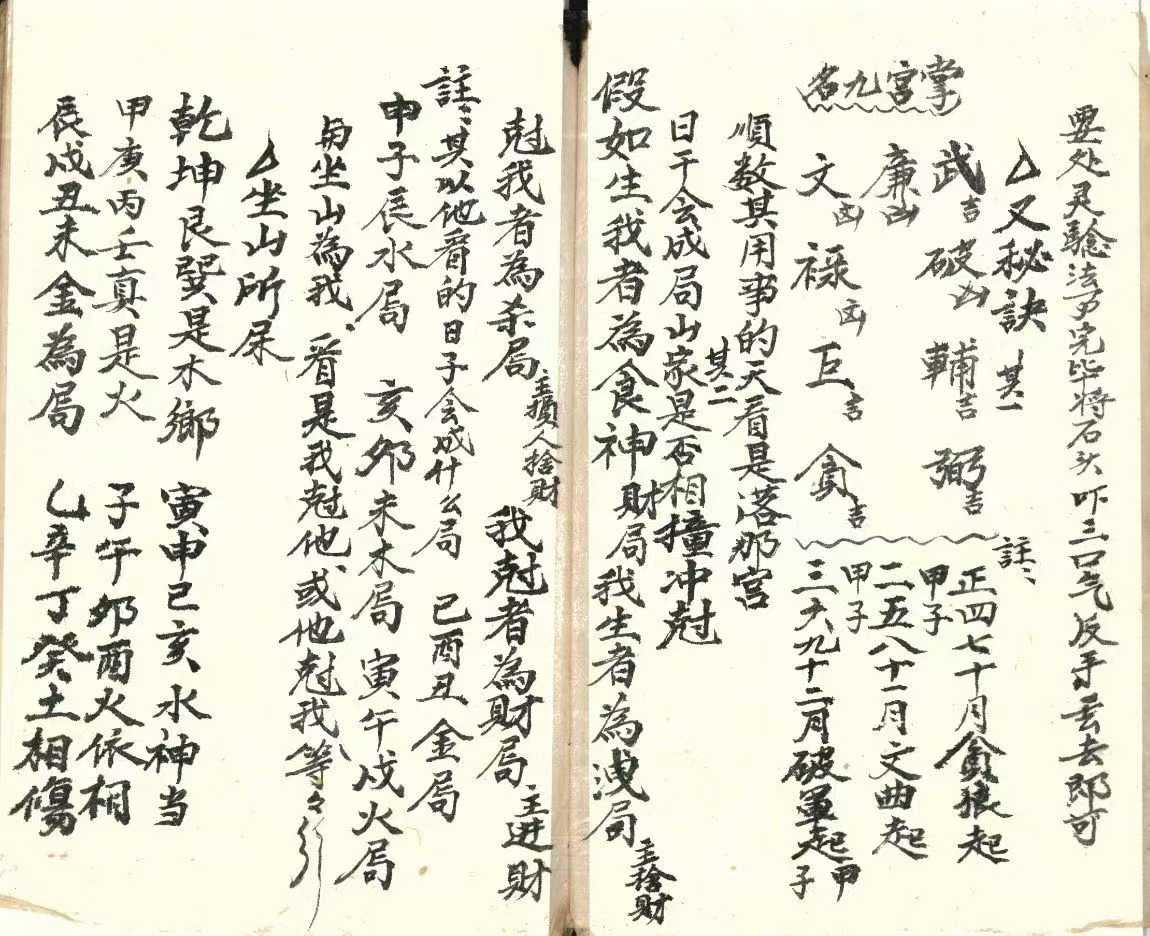 要处灵驗法尹完毕将石头吓三口气反手丢去即可
△又秘訣 其一
註：
武吉 破凶 輔吉 弼吉
正四七十月貪狼起甲子
廉凶
二五八十一月文曲起甲子
文凶 禄凶 巨吉 貪吉
三六九十二月破軍起甲子
名九宮掌
順数其用事的天看是落那宮
其二
日干会成局山家是否相撞冲尅
假如生我者為食神財局我生者為洩局 主捨財
尅我者為杀局 主損人捨財 我尅者為財局 主进財
註：其以他看的日子会成什么局 巳酉丑金局
申子辰水局 亥卯未木局 寅午戌火局
坐山為我、看是我尅他、或他尅我等々
△坐山所属
乾坤艮巽是木鄉 寅申巳亥水神当
甲庚丙壬真是火 子午卯酉火依相
辰戌丑未金為局 乙辛丁癸土相傷